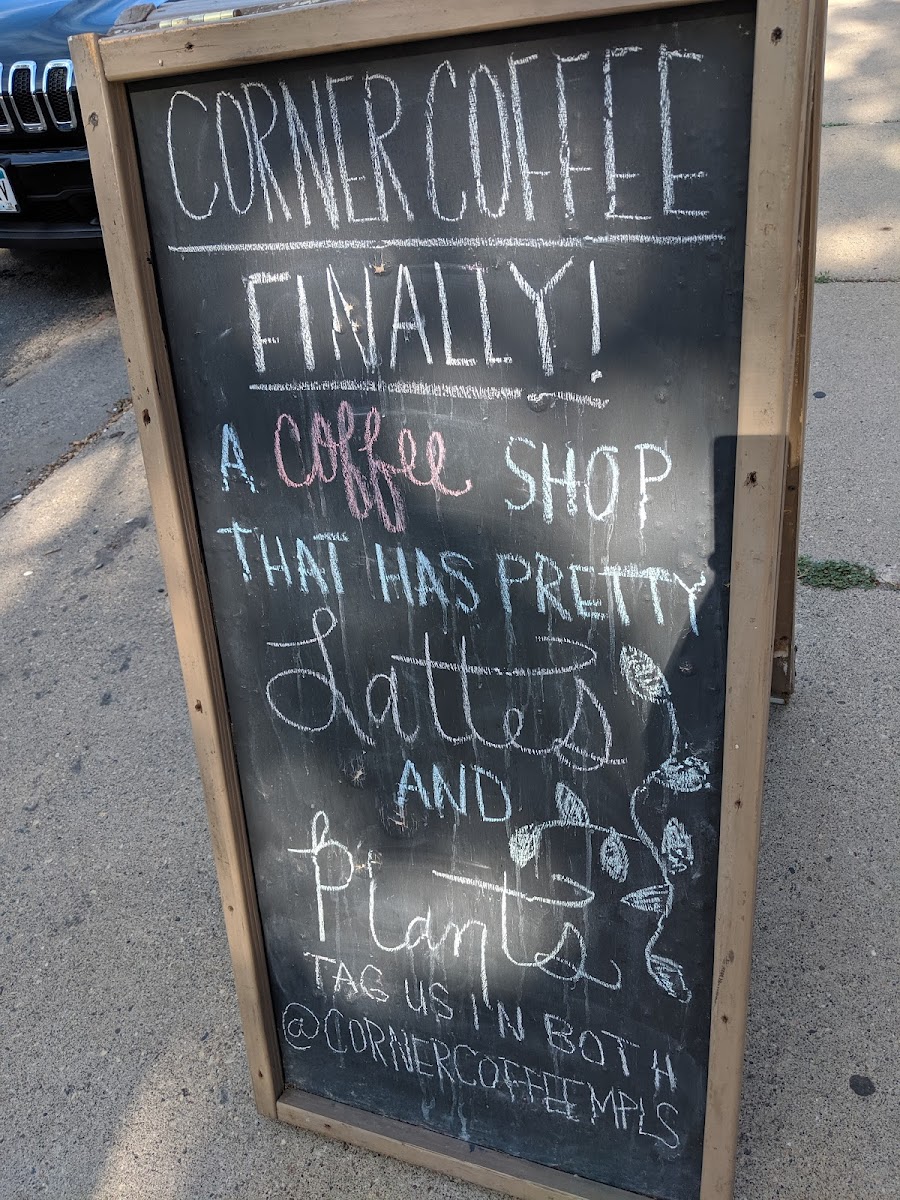 CORNER COFFEE
FINALLY!
A Coffee SHOP
THAT HAS PRETTY
Lattes
AND
Plants
TAG US IN BOTH
@CORNERCOFFEEMPLS